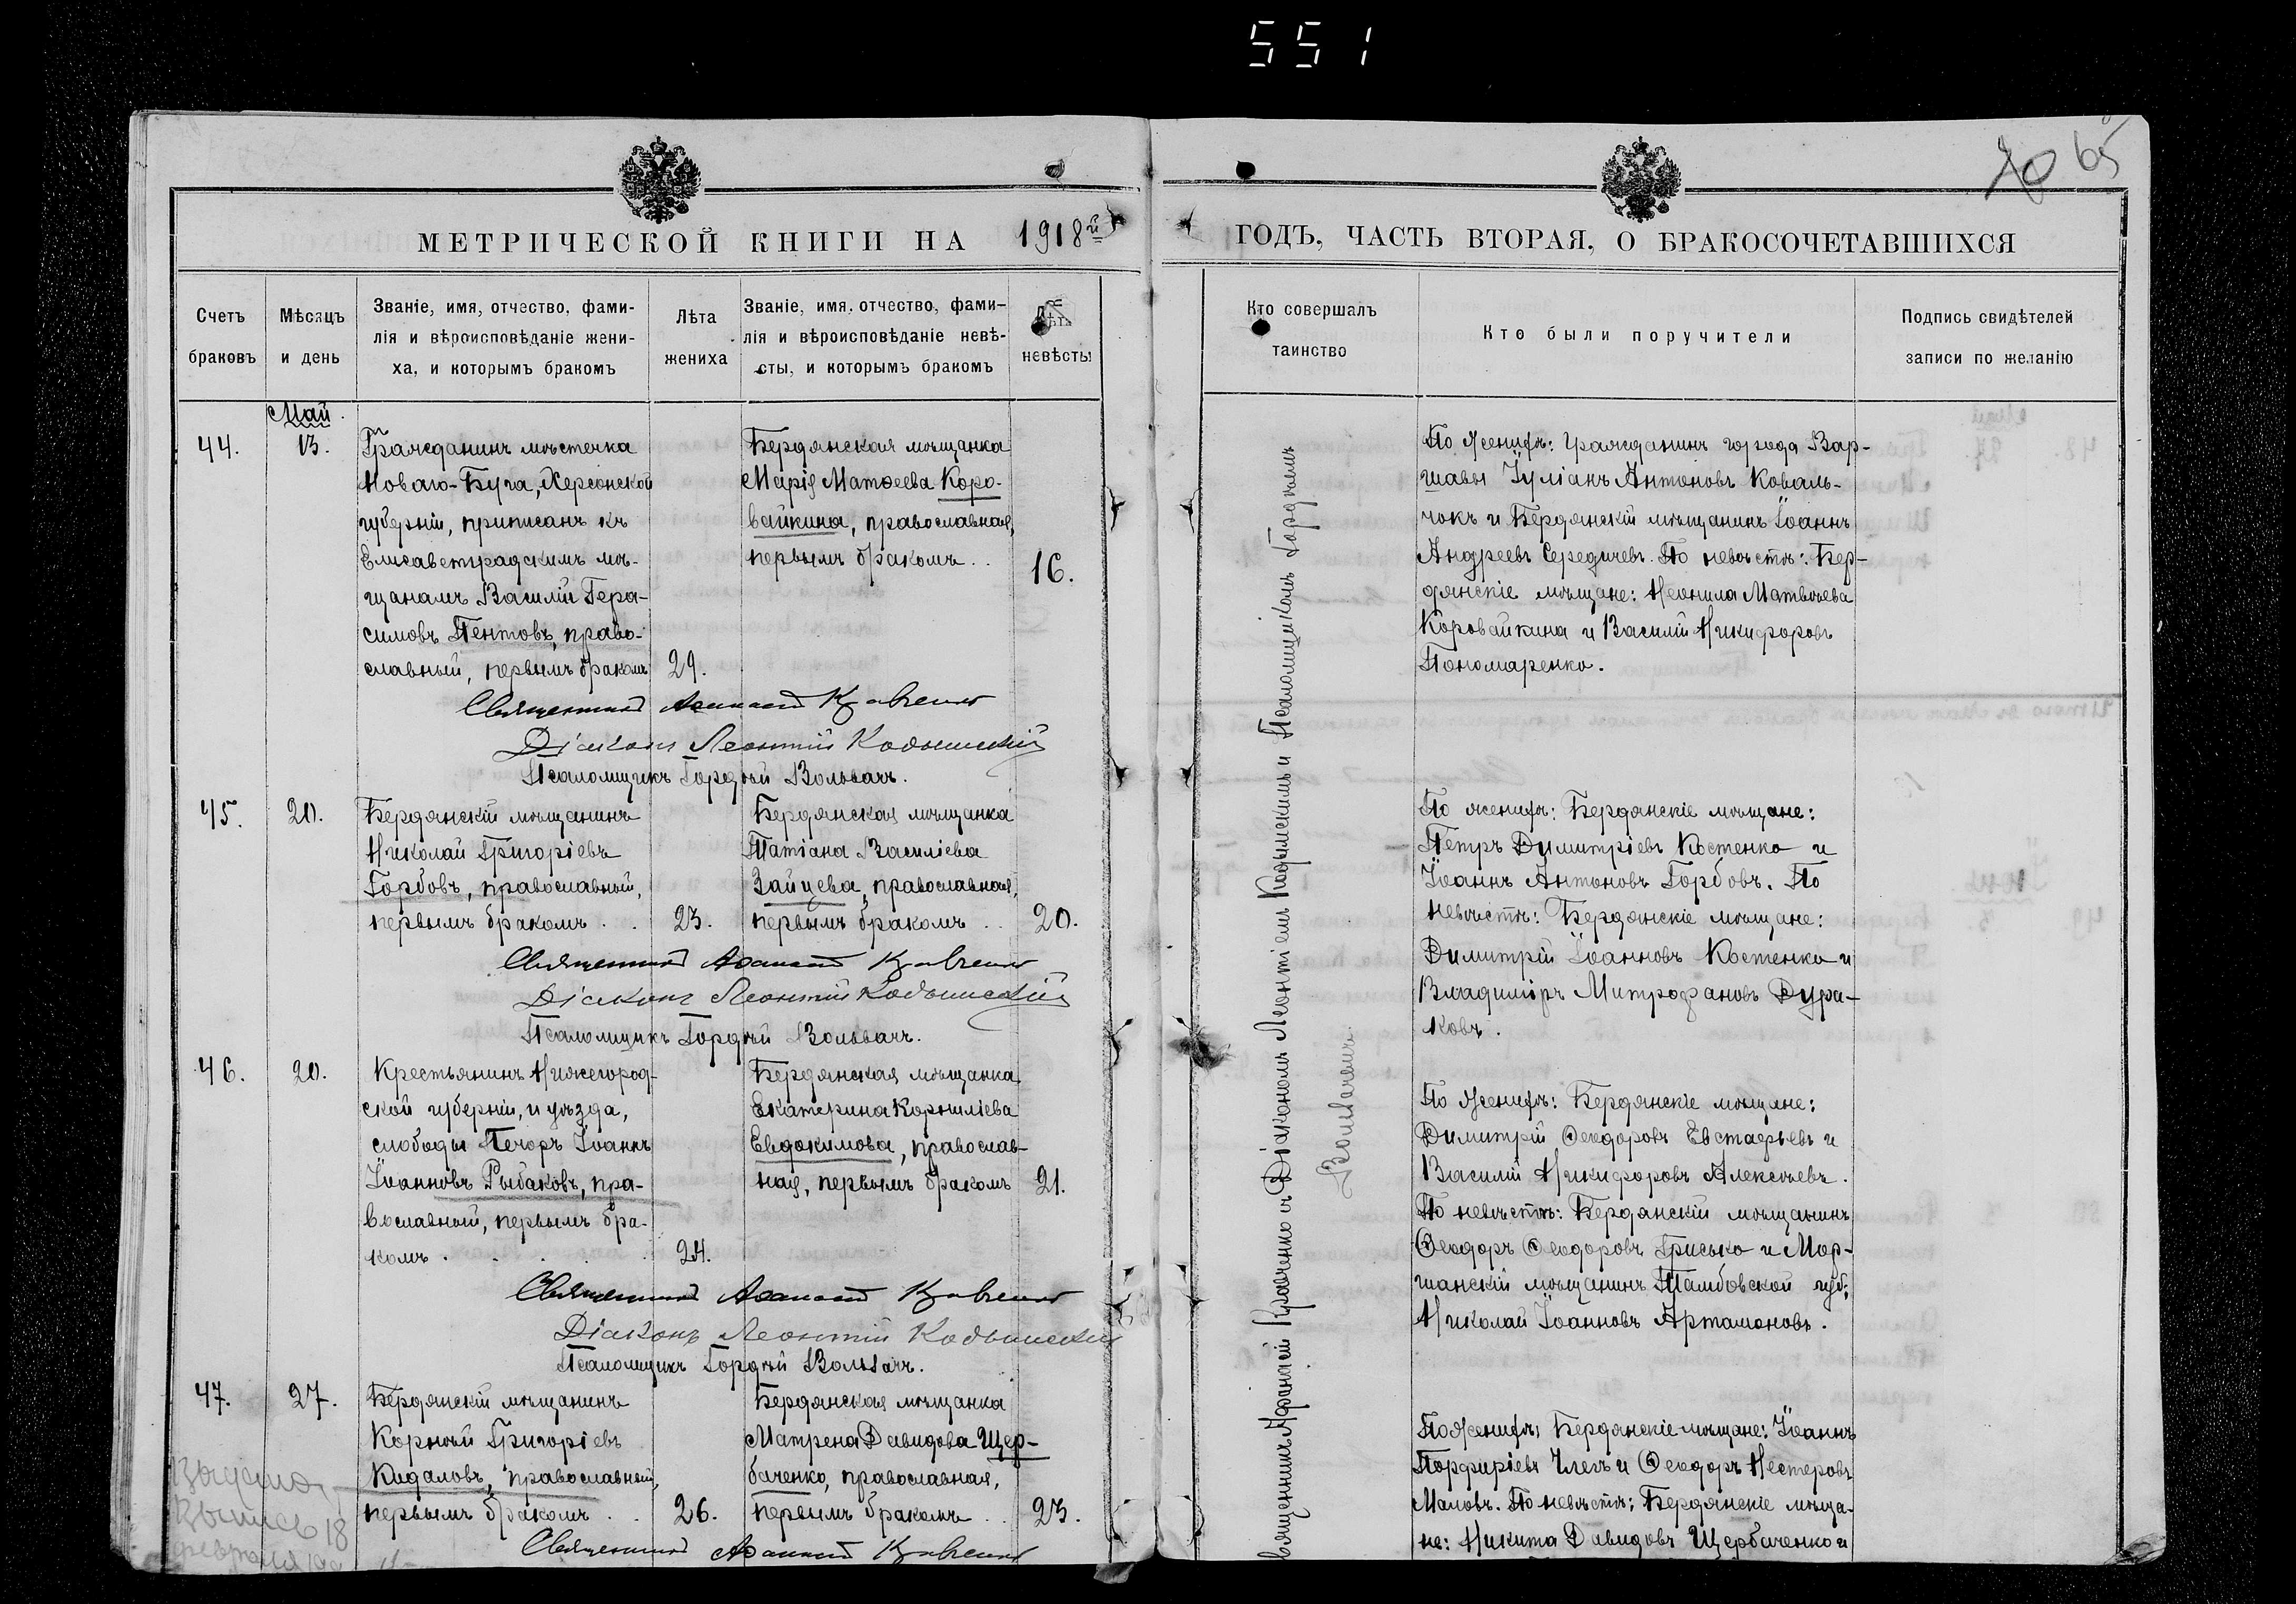 551
65
МЕТРИЧЕСКОЙ КНИГИ НА 1918й
ГОДЪ, ЧАСТЬ ВТОРАЯ, О БРАКОСОЧЕТАВШИХСЯ
Счетъ
браковъ
Мѣсяцъ
и день
Званіе, имя, отчество, фами-
лія и вѣроисповѣданіе жени-
ха, и которымъ бракомъ
Лѣта
жениха
Званіе, имя, отчество, фами-
лія и вѣроисповѣданіе невѣ-
сты, и которымъ бракомъ
Лѣта
невѣсты
Кто совершалъ
таинство
Кто были поручители
Подпись свидѣтелей
записи по желанію
Май
44.
13.
Гражданинъ мѣстечка
Новаго-Буга, Херсонской
губерніи, приписанъ къ
Елисаветградскимъ мѣ-
щанамъ Василій Гера-
симовъ Пентовъ, право-
славный, первымъ бракомъ
29.
Бердянская мѣщанка
Марія Матѳеева Коро-
вайкина, православная,
первымъ бракомъ..
16.
По женихѣ: гражданинъ города Вар-
шавы Іуліанъ Антоновъ Коваль-
чокъ и Бердянскій мѣщанинъ Іоаннъ
Андреевъ Середичевъ. По невѣстѣ: Бер-
дянскіе мѣщане: Неонила Матвѣева
Коровайкина и Василій Никифоровъ
Пономаренко.
Священникъ Аѳанасій Кравченко
Діаконъ Леонтій Кодымскій
Псаломщикъ Гордѣй Вольвачъ.
45.
20.
Бердянскій мѣщанинъ
Николай Григоріевъ
Горбовъ, православный,
первымъ бракомъ . .
23.
Бердянская мѣщанка
Татіана Василіева
Зайцева, православная,
первымъ бракомъ ..
20.
По женихѣ: Бердянскіе мѣщане:
Петръ Димитріевъ Костенко и
Іоаннъ Антоновъ Горбовъ. По
невѣстѣ: Бердянскіе мѣщане:
Димитрій Іоанновъ Костенко и
Владиміръ Митрофановъ Дура-
ковъ.
Священникъ Аѳанасій Кравченко
Діаконъ Леонтій Кодымскій
Псаломщикъ Гордѣй Вольвачъ.
46.
20.
Крестьянинъ Нижегород-
ской губерніи, и уѣзда,
слободы Печоръ Іоаннъ
Іоанновъ Рыбаковъ, пра-
вославный, первымъ бра-
комъ . . . . .
24.
Бердянская мѣщанка
Екатерина Корниліева
Евдокимова, православ-
ная, первымъ бракомъ
21.
По женихѣ: Бердянскіе мѣщане:
Димитрій Ѳеодоровъ Евстафьевъ и
Василій Никифоровъ Алексѣевъ.
По невѣстѣ: Бердянскій мѣщанинъ
Ѳеодоръ Ѳеодоровъ Грисько и Мор-
шанскій мѣщанинъ Тамбовской губ:
Николай Іоанновъ Артамоновъ.
Священникъ Аѳанасій Кравченко
Діаконъ Леонтій Кодымскій
Псаломщикъ Гордѣй Вольвачъ.
47.
27.
Бердянскій мѣщанинъ
Корнѣй Григоріевъ
Кидаловъ, православный,
первымъ бракомъ . .
26.
Бердянская мѣщанка
Матрена Давидова Щер-
баченко, православная,
первымъ бракомъ ..
23.
По женихѣ: Бердянскіе мѣщане: Іоаннъ
Порфиріевъ и Ѳеодоръ Нестеровъ
Маловъ. По невѣстѣ: Бердянскіе мѣща-
не: Никита Давидовъ Щербаченко и
Священникъ Аѳанасій Кравченко
18
февраля
Священникъ Аѳанасій Кравченко съ Діакономъ Леонтіемъ Кодымскимъ и Псаломщикомъ Гордѣемъ
Вольвачемъ.